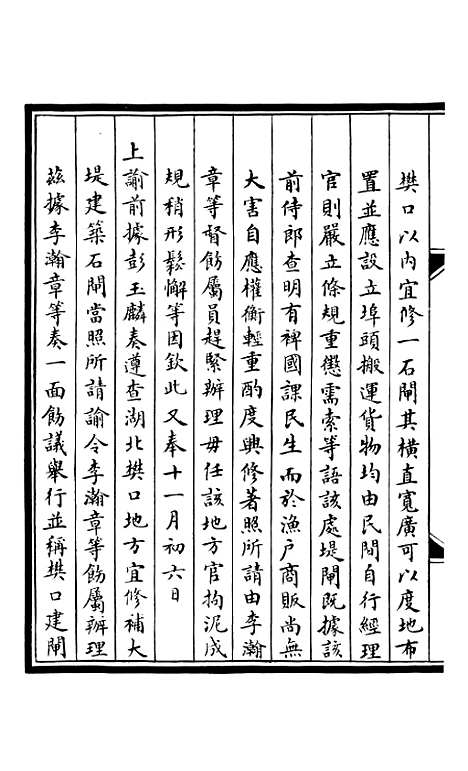 樊口以內宜修一石閘其橫直寬廣可以度地布
置並應設立埠頭搬運貨物均由民間自行經理
官則嚴立條規重懲需索等語該處堤閘既據該
前侍郎查明有裨國課民生而於漁户商販尚無
大害自應權衡輕重酌度興修著照所請由李瀚
章等督飭屬員趕緊辦理毋任該地方官拘泥成
規稍形鬆懈等因欽此又奉十一月初六日
上諭前據彭玉麟奏遵查湖北樊口地方宜修補大
堤建築石閘當照所請諭令李瀚章等飭屬辦理
茲據李瀚章等奏一面飭議舉行並稱樊口建閘